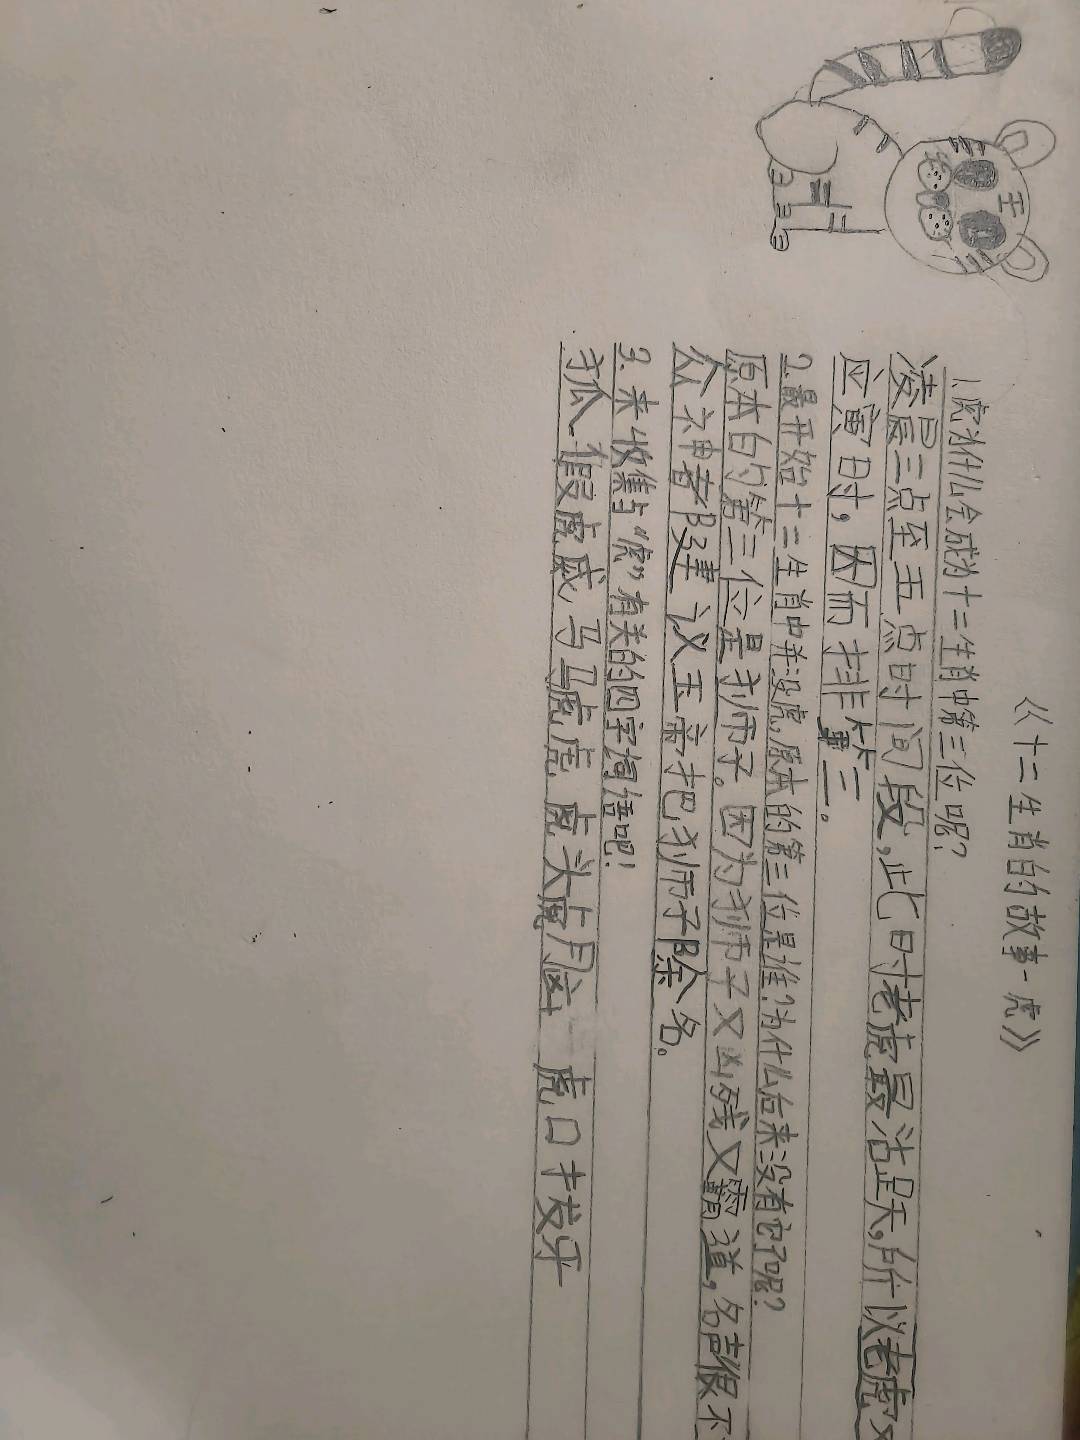 《十二生肖的故事-虎》
王
1.虎为什么会成为十二生肖中第三位呢?
凌晨三点至五点时间段,此时老虎最活跃,所以老虎对
应寅时,因而排第三。
2.最开始十二生肖中并没虎,原本的第三位是谁?为什么后来没有它了呢?
原本的第三位是狮子。因为狮子又凶残又霸道,名声很不
众神者降建议玉帝把狮子除名。
3.来收集与“虎”有关的四字词语吧!
狐假虎威 马马虎虎 虎头虎脑 虎口拔牙